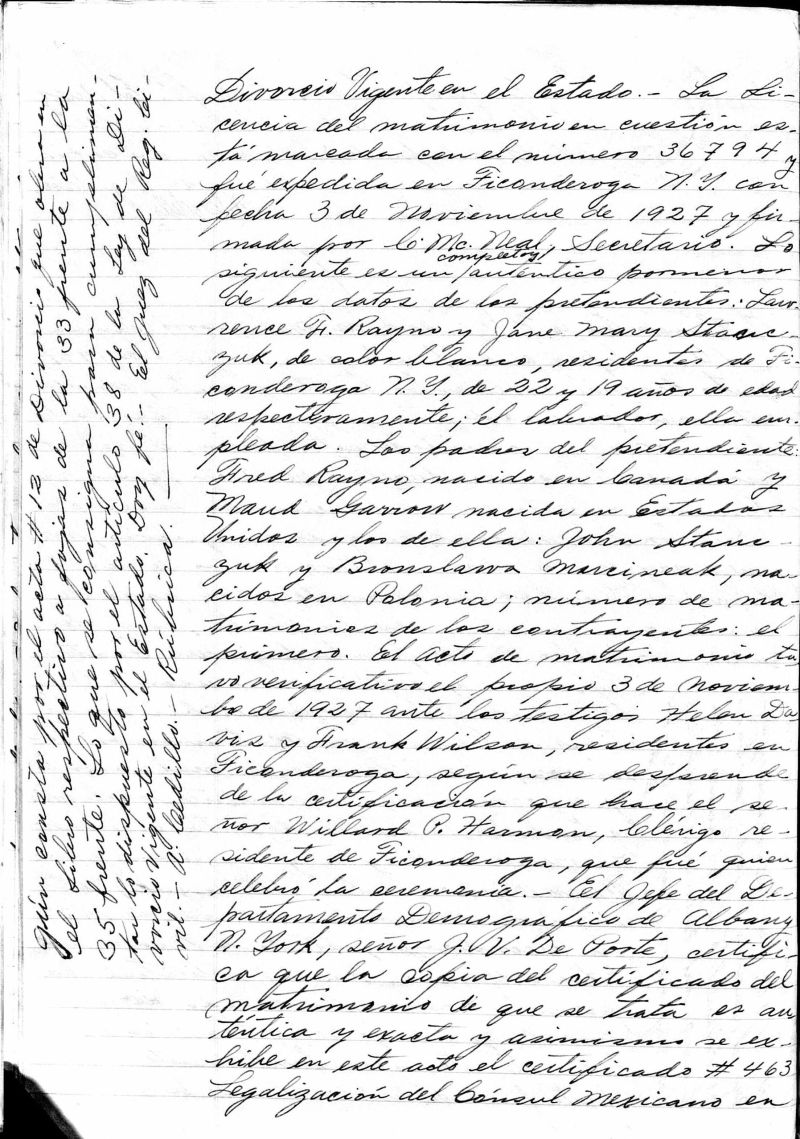 Divorcio Vigente en el Estado.- La Li-
cencia del matrimonio en cuestión es-
tá marcada con el número 36794 y
fué expedida en Ticonderoga N.Y. con
fecha 3 de Noviembre de 1927 y fir-
mada por C. Mc. Neal, Secretario. Lo
completo y
siguiente es un auténtico pormenor
de los datos de los pretendientes: Law-
rence F. Rayno y Jane Mary Stanc-
zuk, de color blanco, residentes de Ti-
conderoga N.Y., de 22 y 19 años de edad
respectivamente; él labrador, ella em-
pleada. Los padres del pretendiente:
Fred Rayno, nacido en Canadá y
Maud Garrow nacida en Estados
Unidos y los de ella: John Stanc-
zuk y Bronslawa Marcineak, na-
cidos en Polonia; número de ma-
trimonios de los contrayentes: el
primero. El Acto de matrimonio tu-
vo verificativo el propio 3 de Noviem-
bre de 1927 ante los testigos Helen Da-
vis y Frank Wilson, residentes en
Ticonderoga, según se desprende
de la certificación que hace el se-
ñor Willard P. Harmon, Clérigo re-
sidente de Ticonderoga, que fué quien
celebró la ceremonia.- El Jefe del De-
partamento Demográfico de Albany
N. York, señor J. V. De Porte, certifi-
ca que la copia del certificado del
matrimonio de que se trata es au-
téntica y exacta y asimismo se ex-
hibe en este acto el certificado # 463
Legalización del Cónsul Mexicano en
gún consta por el acta # 12 de Divorcio que obra en
el Libro respectivo a fojas de la 33 frente a la
35 frente. Lo que se consigna para cumplimen-
tar lo dispuesto por el artículo 38 de la Ley de Di-
vorcio Vigente en el Estado. Doy fé.- El Juez del Reg. Ci-
vil.- A. Cedillo.- Rúbrica.